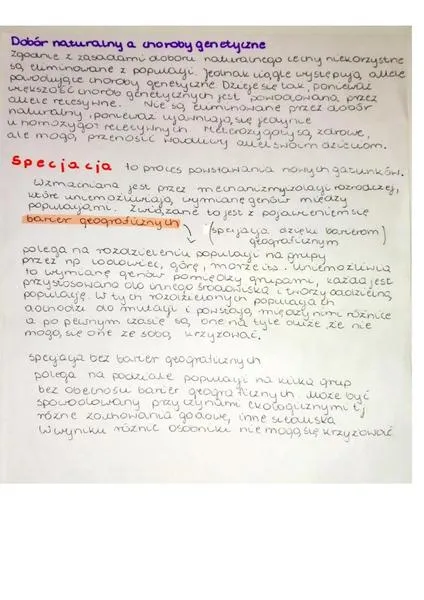 Dobór naturalny a choroby genetyczne
Zgodnie z zasadami doboru naturalnego cechy niekorzystne
są eliminowane z populacji. Jednak ciągle występują allele
powodujące choroby genetyczne Dzieje się tak, ponieważ
większość chorób genetycznych jest powodowana przez
allele recesywne. Nie są eliminowane przez dobór
naturalny, ponieważ ujawniają się jedynie
u homozygot recesywnych. Heterozygoty są zdrowe,
ale mogą przenosić wadliwy allel swoim dzieciom.
Specjacja to proces powstawania nowych gatunków.
Wzmacniana jest przez mechanizmy izolacji rozrodczej,
które uniemożliwiają wymianę genów między
populacjami. Związane to jest z pojawieniem się
barier geograficznych (specjacja dzięki barierom
geograficznym)
polega na rozdzieleniu populacji na grupy
przez np lodowiec, górę, morze itd. Uniemożliwia
to wymianę genów pomiędzy grupami, każda jest
przystosowana do innego środowiska i tworzy oddzielną
populację. W tych rozdzielonych populacjach
dochodzi do mutacji i powstają między nimi różnice
a po pewnym czasie są one na tyle duże że nie
mogą się one ze sobą krzyżować.
specjacja bez barier geograficznych
polega na podziale populacji na kilka grup
bez obecności barier geograficznych. Może być
spowodowany przyczynami ekologicznymi tj
różne zachowania godowe, inne siedliska
W wyniku różnic osobniki nie mogą się krzyżować